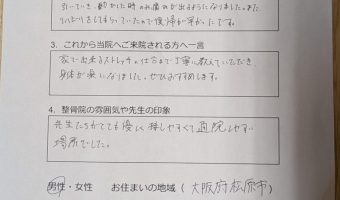 引いていき、動かした時のみ痛みが出るようになりました。また
リハビリをしてもらっていたので復帰が早かったです。
3. これから当院へご来院される方へ一言
家で出来るストレッチの仕方まで丁寧に教えていただき、
身体が楽になりました。ぜひおすすめします。
4. 整骨院の雰囲気や先生の印象
先生たちがとても優しく接しやすくて通院しやすい
場所でした。
男性・女性 お住まいの地域 ( 大阪府松原市 )